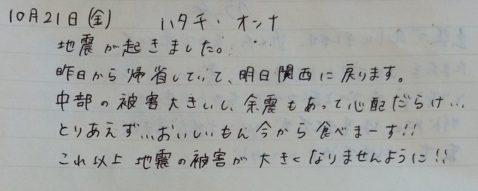 10月21日(金)　ハタチ・オンナ
地震が起きました。
昨日から帰省していて、明日関西に戻ります。
中部の被害大きいし、余震もあって心配だらけ…
とりあえず…おいしいもん今から食べまーす!!
これ以上地震の被害が大きくなりませんように!!